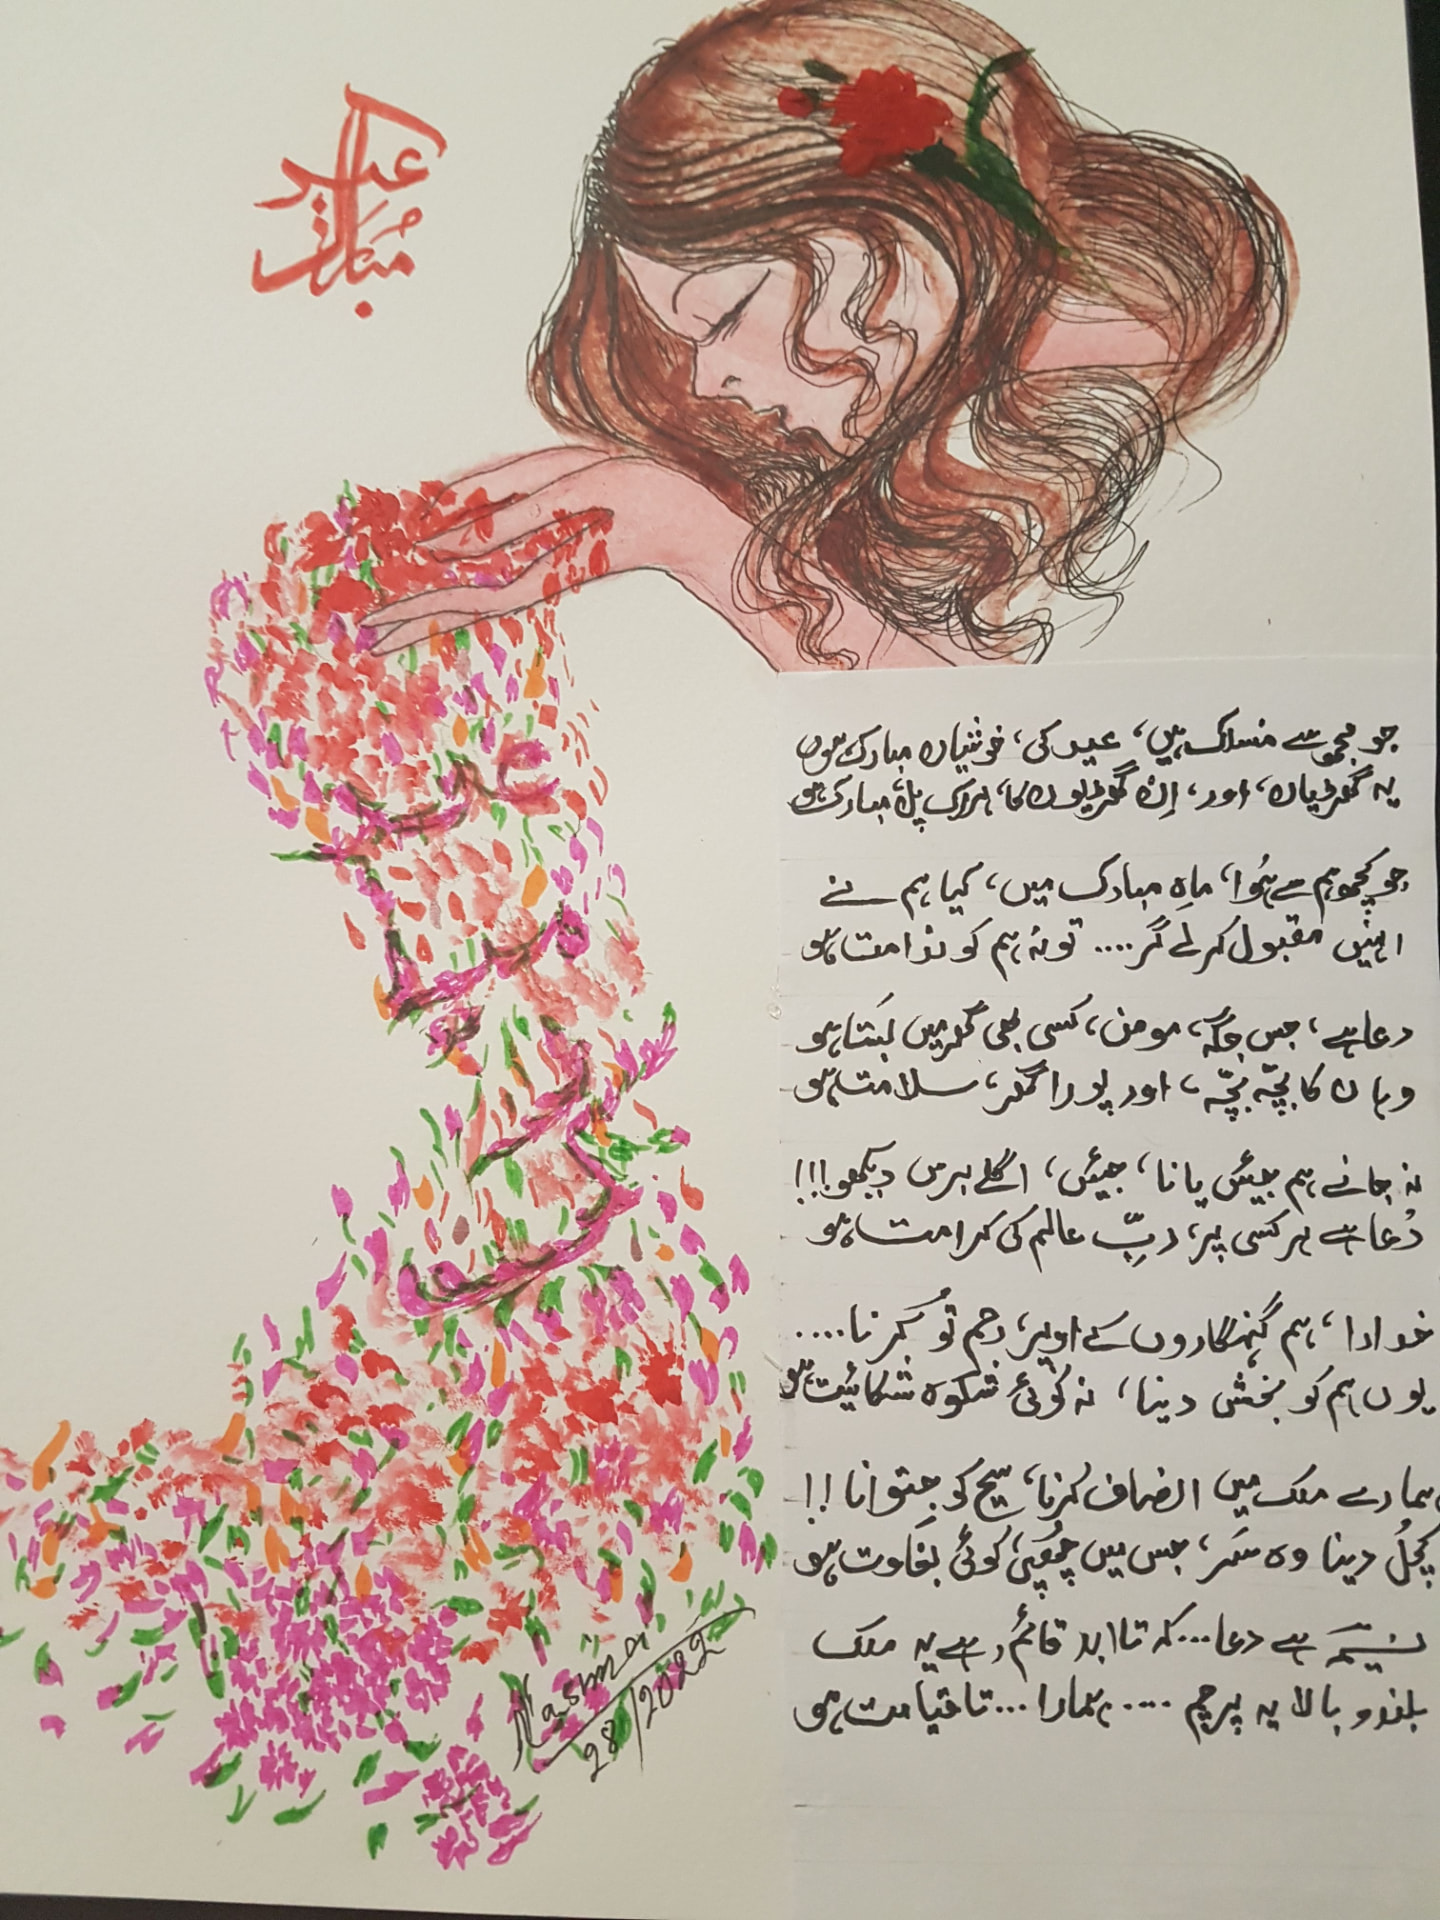 عید
مبارک
جو مجھ سے منسلک ہیں، عید کی، خوشیاں مبارک ہوں
یہ گھڑیاں، اور، اِن گھڑیوں کا، ہر اک پل، مبارک ہو
جو کچھ ہم سے ہُوا، ماہِ مبارک میں، کیا ہم نے
انہیں مقبول کر لے گر.... تو نہ ہم کو ندامت ہو
دعا ہے، جس جگہ، مومن، کسی بھی گھر میں بَستا ہو
وہاں کا بچّہ بچّہ، اور پورا گھر، سلامت ہو
نہ جانے ہم جیئں یا نا، جیئں، اگلے برس دیکھو!!!
دُعا ہے ہر کسی پر، ربِّ عالم کی کرامت ہو
خدادا، ہم گنہگاروں کے اوپر، رحم تُو کرنا....
یوں ہم کو بخش دینا، نہ کوئی شکوہ شکائیت ہو
ہمارے ملک میں انصاف کرنا، سچ کو جتوانا!!
کچل دینا وہ سَر، جس میں چھُپی، کوئی بغاوت ہو
ہے دعا... کہ تا ابد قائم رہے یہ ملک
بلند و بالا یہ پرچم .... ہمارا... تا قیامت ہو
عید
مبارک
Nasma
28/2022